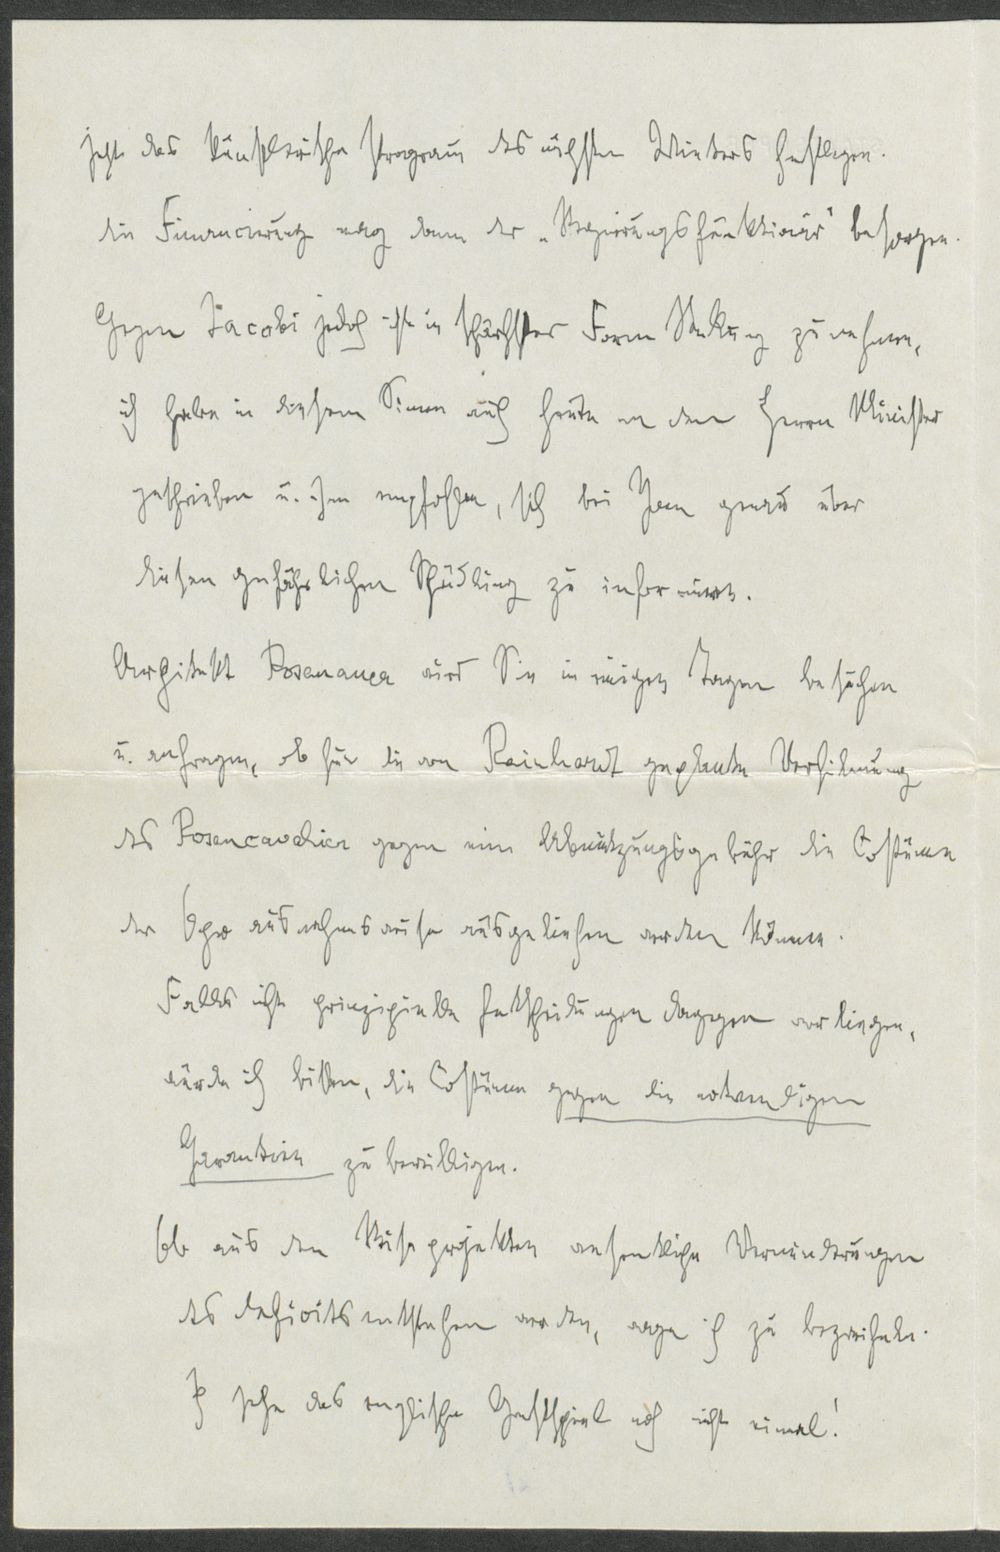 jetzt das künstlerische Program des nächsten Winters festlegen.
die Financierung mag dann der „Regierungsfunktionär" besorgen.
Gegen Jacobi jedoch ist in schärfster Form Stellung zu nehmen,
ich habe in diesem Sinne auch heute an den Herrn Minister
geschrieben u. ihm empfohlen, sich bei Ihnen genau über
diesen gefährlichen Schädling zu informiren.
Architekt Rosenauer wird Sie in einigen Tagen besuchen
u. anfragen, ob für die von Reinhardt geplante Verfilmung
des Rosencavalier gegen eine Abnützungsgebühr die Costüme
der Oper ausnahmsweise ausgeliehen werden können.
Falls nicht prinzipielle Entscheidungen dagegen vorliegen,
würde ich bitten, die Costüme gegen die notwendigen
Garantien zu bewilligen.
Ob aus den Reiseprojekten wesentliche Verminderungen
des Deficits entstehen werden, wage ich zu bezweifeln.
Ich sehe das englische Gastspiel noch nicht einmal!